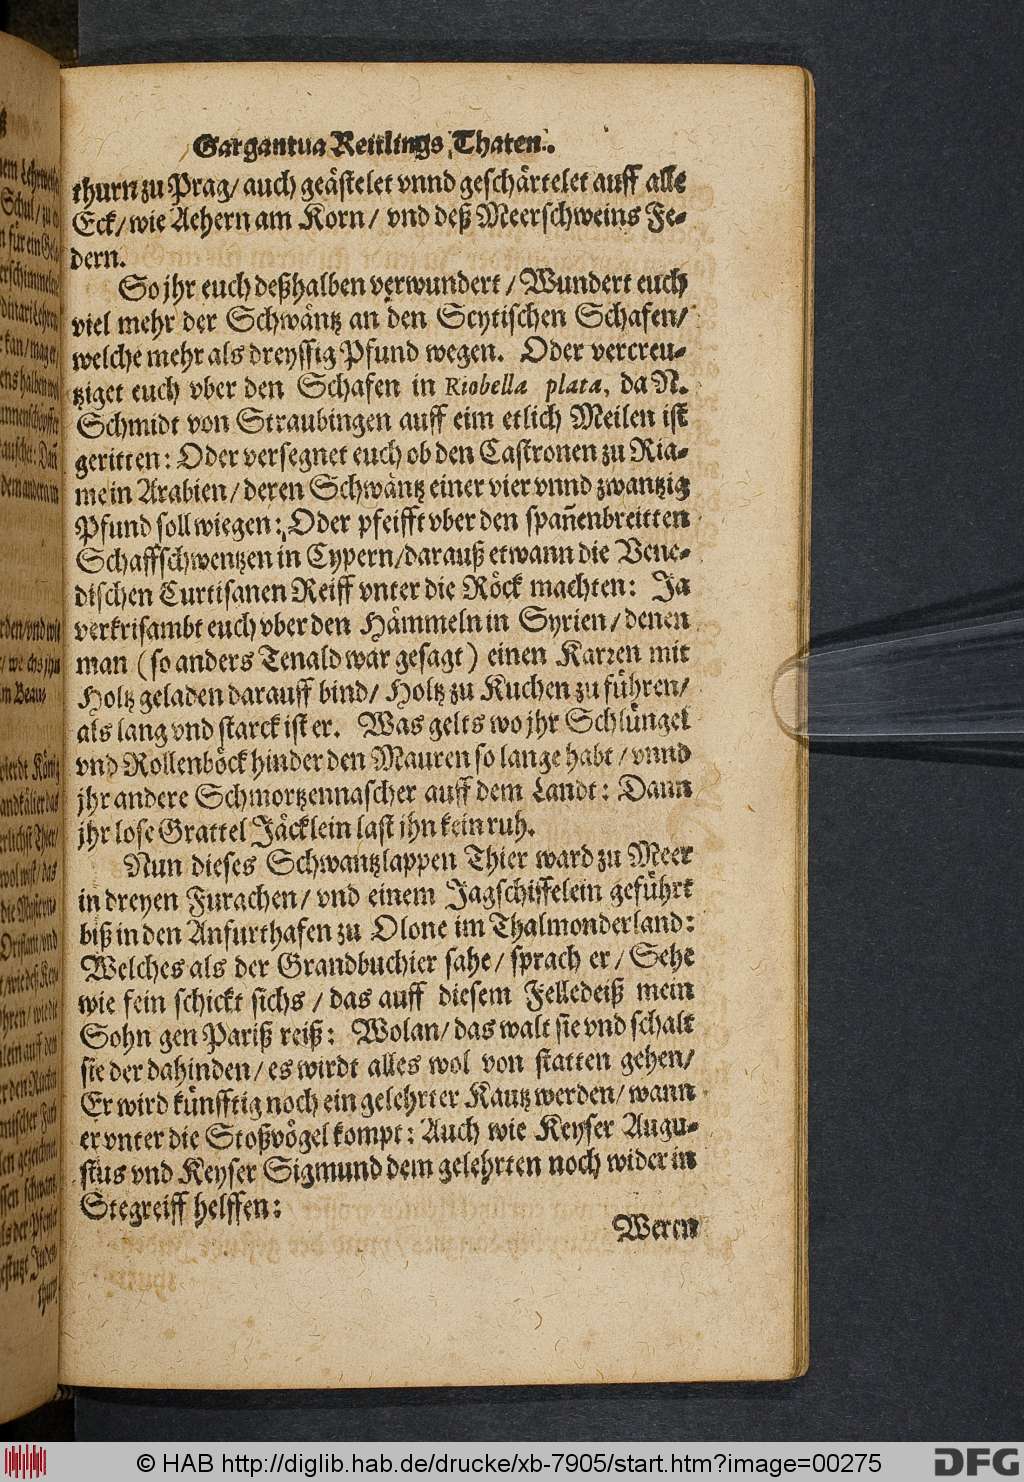 Gargantua Reitlings Thaten.
thurn zu Prag/ auch geästelet vnnd geschärtelet auff alle
Eck/ wie Aehern am Korn/ vnd deß Meerschweins Fe-
dern.
So jhr euch deßhalben verwundert / Wundert euch
viel mehr der Schwäntz an den Scytischen Schafen/
welche mehr als dreyssig Pfund wegen. Oder vercreu-
tziget euch vber den Schafen in Riobella plata, da N.
Schmidt von Straubingen auff eim etlich Meilen ist
geritten: Oder versegnet euch ob den Castronen zu Ria-
me in Arabien/ deren Schwäntz einer vier vnnd zwantzig
Pfund soll wiegen: Oder pfeifft vber den spañenbreitten
Schaffschwentzen in Cypern/ darauß etwann die Vene-
dischen Curtisanen Reiff vnter die Röck machten: Ja
verkrisambt euch vber den Hämmeln in Syrien/ denen
man (so anders Tenald war gesagt) einen Karren mit
Holtz geladen darauff bind/ Holtz zu Kuchen zu führen/
als lang vnd starck ist er. Was gelts wo jhr Schlüngel
vnd Rollenböck hinder den Mauren so lange habt / vnnd
jhr andere Schmortzennascher auff dem Landt: Dann
jhr lose Grattel Jäcklein last jhn kein ruh.
Nun dieses Schwantzlappen Thier ward zu Meer
in dreyen Furachen/ vnd einem Jagschiffelein geführt
biß in den Anfurthafen zu Olone im Thalmonderland:
Welches als der Grandbuchier sahe/ sprach er/ Sehe
wie fein schickt sichs / das auff diesem Felledeiß mein
Sohn gen Pariß reiß: Wolan/ das walt sie vnd schalt
sie der dahinden/ es wirdt alles wol von statten gehen/
Er wird künfftig noch ein gelehrter Kautz werden/ wann
er vnter die Stoßvögel kompt: Auch wie Keyser Augu-
stus vnd Keyser Sigmund dem gelehrten noch wider in
Stegreiff helffen:
Weren
© HAB http://diglib.hab.de/drucke/xb-7905/start.htm?image=00275
DFG